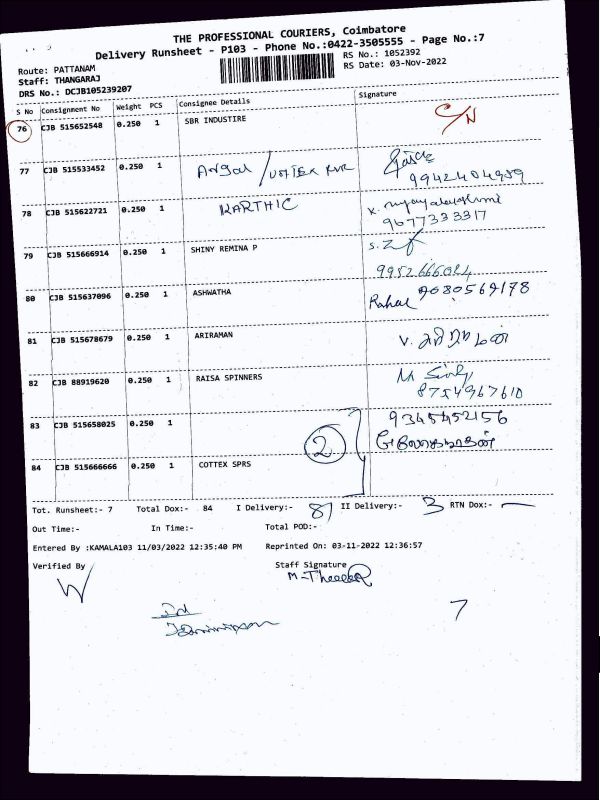 THE PROFESSIONAL COURIERS, Coimbatore
Delivery Runsheet - P103 - Phone No.:0422-3505555 - Page No.:7
Route: PATTANAM
RS No.: 1052392
Staff: THANGARAJ
RS Date: 03-Nov-2022
DRS No.: DCJB105239207
S No Consignment No Weight PCS Consignee Details Signature
76 CJB 515652548 0.250 1 SBR INDUSTIRE C/N
77 CJB 515533452 0.250 1
9942404959
78 CJB 515622721 0.250 1 KARTHIC
9677333317
79 CJB 515666914 0.250 1 SHINY REMINA P
9952666024
80 CJB 515637096 0.250 1 ASHWATHA Rahul 9080569178
81 CJB 515678679 0.250 1 ARIRAMAN V.
82 CJB 88919620 0.250 1 RAISA SPINNERS
8754967610
83 CJB 515658025 0.250 1 9345452156
84 CJB 515666666 0.250 1 COTTEX SPRS 2
Tot. Runsheet:- 7 Total Dox:- 84 I Delivery:- 81 II Delivery:- 3 RTN Dox:- —
Out Time:- In Time:- Total POD:-
Entered By :KAMALA103 11/03/2022 12:35:40 PM Reprinted On: 03-11-2022 12:36:57
Verified By Staff Signature
7